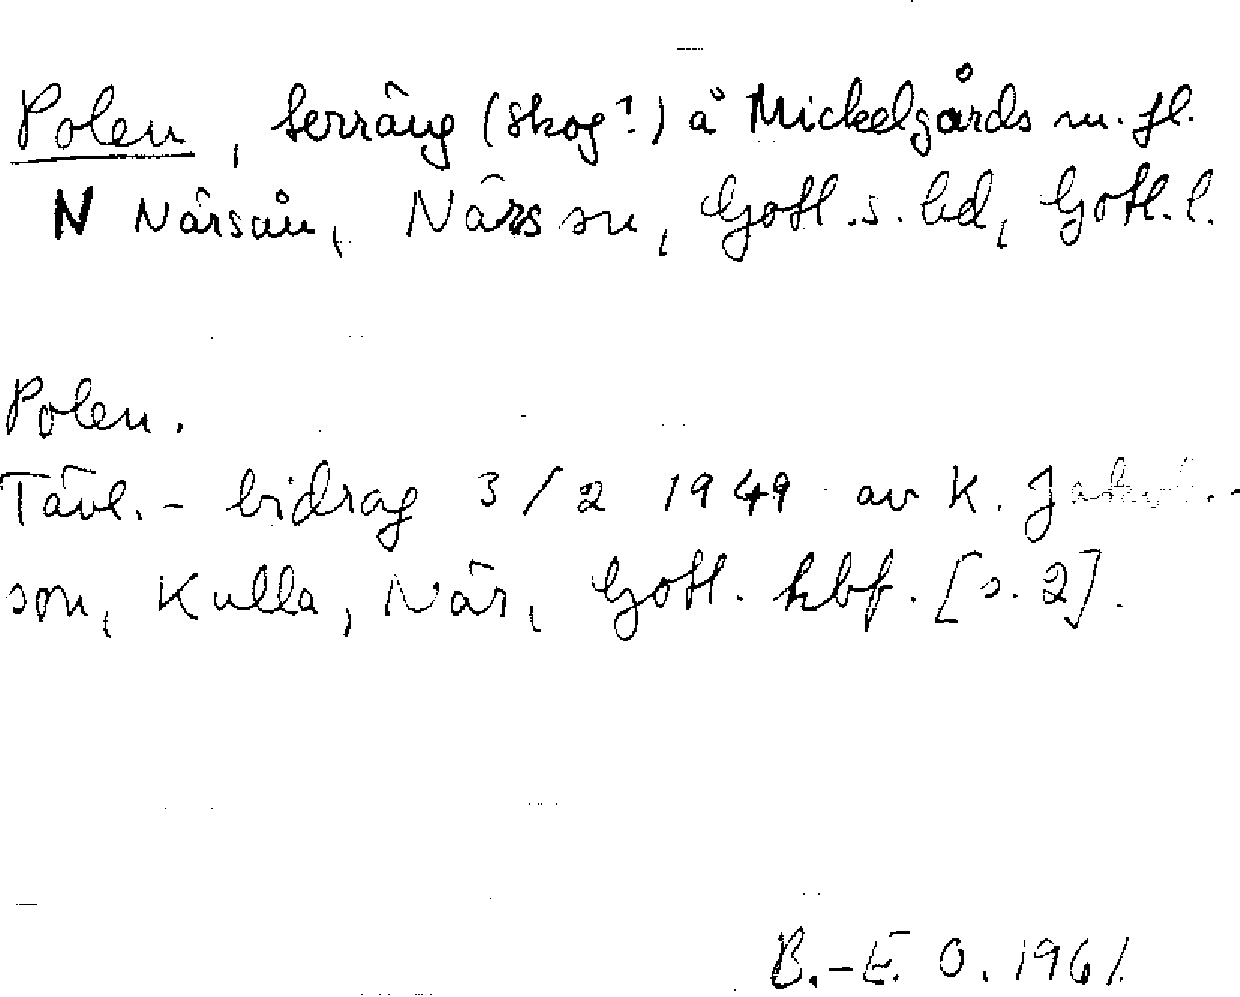 Polen, terräng (skog?) å Mickelgårds m. fl.
N Närsån, Närs sn, Gotl. s. hd, Gotl. l.
Polen.
Tävl. - bidrag 3/2 1949 av K. Jakobs-
son, Kulla, När, Gotl. hbf. [s. 2].
B.-E. O. 1961.